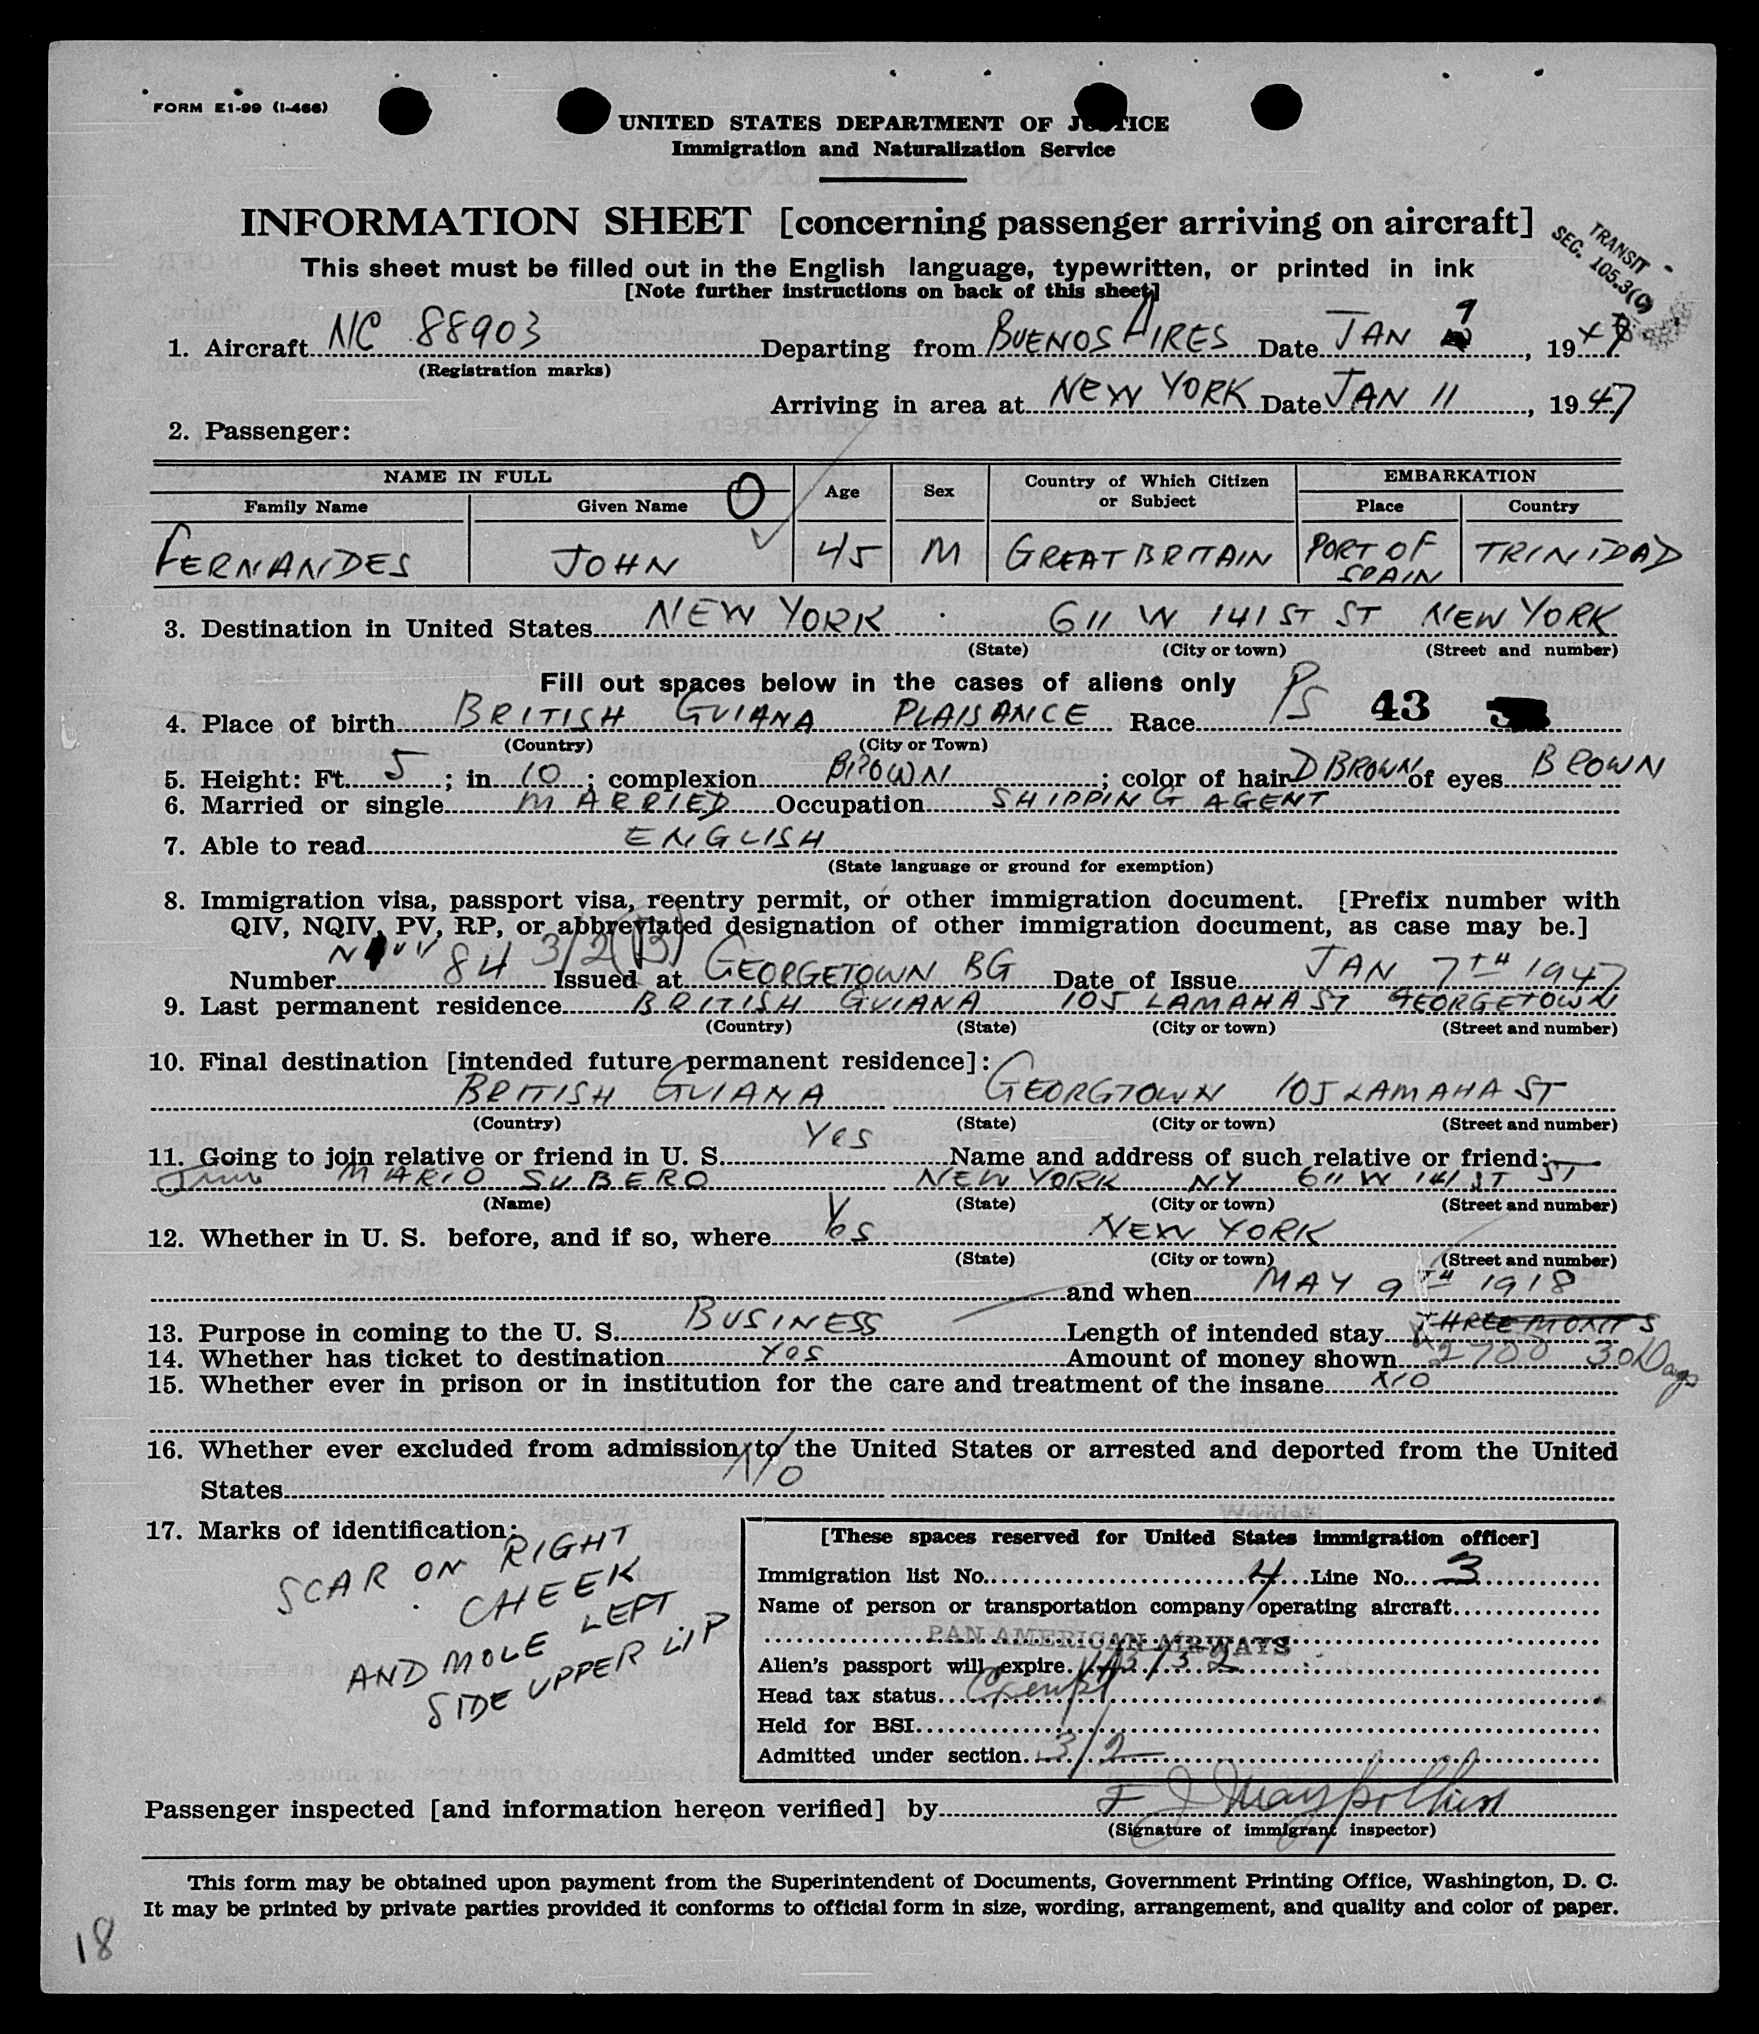 FORM E1-99 (I-466)
UNITED STATES DEPARTMENT OF JUSTICE
Immigration and Naturalization Service
INFORMATION SHEET [concerning passenger arriving on aircraft]
TRANSIT
SEC. 105.3(C)
This sheet must be filled out in the English language, typewritten, or printed in ink
[Note further instructions on back of this sheet]
1. Aircraft NC 88903 Departing from BUENOS AIRES Date JAN 9, 1947
(Registration marks)
Arriving in area at NEW YORK Date JAN 11, 1947
2. Passenger:
NAME IN FULL Age Sex Country of Which Citizen or Subject EMBARKATION
Family Name Given Name Place Country
FERNANDES JOHN 45 M GREAT BRITAIN PORT OF SPAIN TRINIDAD
3. Destination in United States NEW YORK 611 W 141 ST ST NEW YORK
(State) (City or town) (Street and number)
Fill out spaces below in the cases of aliens only
4. Place of birth BRITISH GUIANA PLAISANCE Race PS 43
(Country) (City or Town)
5. Height: Ft. 5; in. 10; complexion BROWN; color of hair D BROWN of eyes BROWN
6. Married or single MARRIED Occupation SHIPPING AGENT
7. Able to read ENGLISH
(State language or ground for exemption)
8. Immigration visa, passport visa, reentry permit, or other immigration document. [Prefix number with
QIV, NQIV, PV, RP, or abbreviated designation of other immigration document, as case may be.]
Number 84 3/2(B) Issued at GEORGETOWN BG Date of Issue JAN 7TH 1947
9. Last permanent residence BRITISH GUIANA 105 LAMAHA ST GEORGETOWN
(Country) (State) (City or town) (Street and number)
10. Final destination [intended future permanent residece]:
BRITISH GUIANA GEORGTOWN 105 LAMAHA ST
(Country) (State) (City or town) (Street and number)
11. Going to join relative or friend in U. S. Yes Name and address of such relative or friend:
MARIO SUBERO NEW YORK NY 611 W 141 ST ST
(Name) (State) (City or town) (Street and number)
12. Whether in U. S. before, and if so, where Yes NEW YORK
(State) (City or town) (Street and number)
and when MAY 9TH 1918
13. Purpose in coming to the U. S. BUSINESS Length of intended stay THREE MONTS
14. Whether has ticket to destination Yes Amount of money shown 2700 30 Days
15. Whether ever in prison or in institution for the care and treatment of the insane NO
16. Whether ever excluded from admission to the United States or arrested and deported from the United
States NO
17. Marks of identification:
SCAR ON RIGHT
CHEEK
AND MOLE LEFT
SIDE UPPER LIP
[These spaces reserved for United States immigration officer]
Immigration list No. 4 Line No. 3
Name of person or transportation company operating aircraft
PAN AMERICAN AIRWAYS
Alien's passport will expire
Head tax status Exempt
Held for BSI
Admitted under section 3/2
Passenger inspected [and information hereon verified] by
(Signature of immigrant inspector)
This form may be obtained upon payment from the Superintendent of Documents, Government Printing Office, Washington, D. C.
It may be printed by private parties provided it conforms to official form in size, wording, arrangement, and quality and color of paper.
18